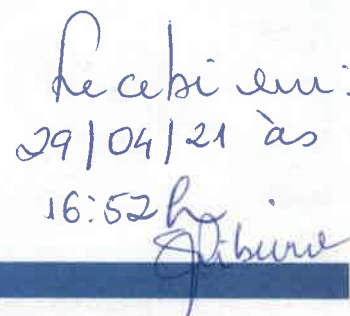 Recebi em:
29/04/21 às
16:52h.